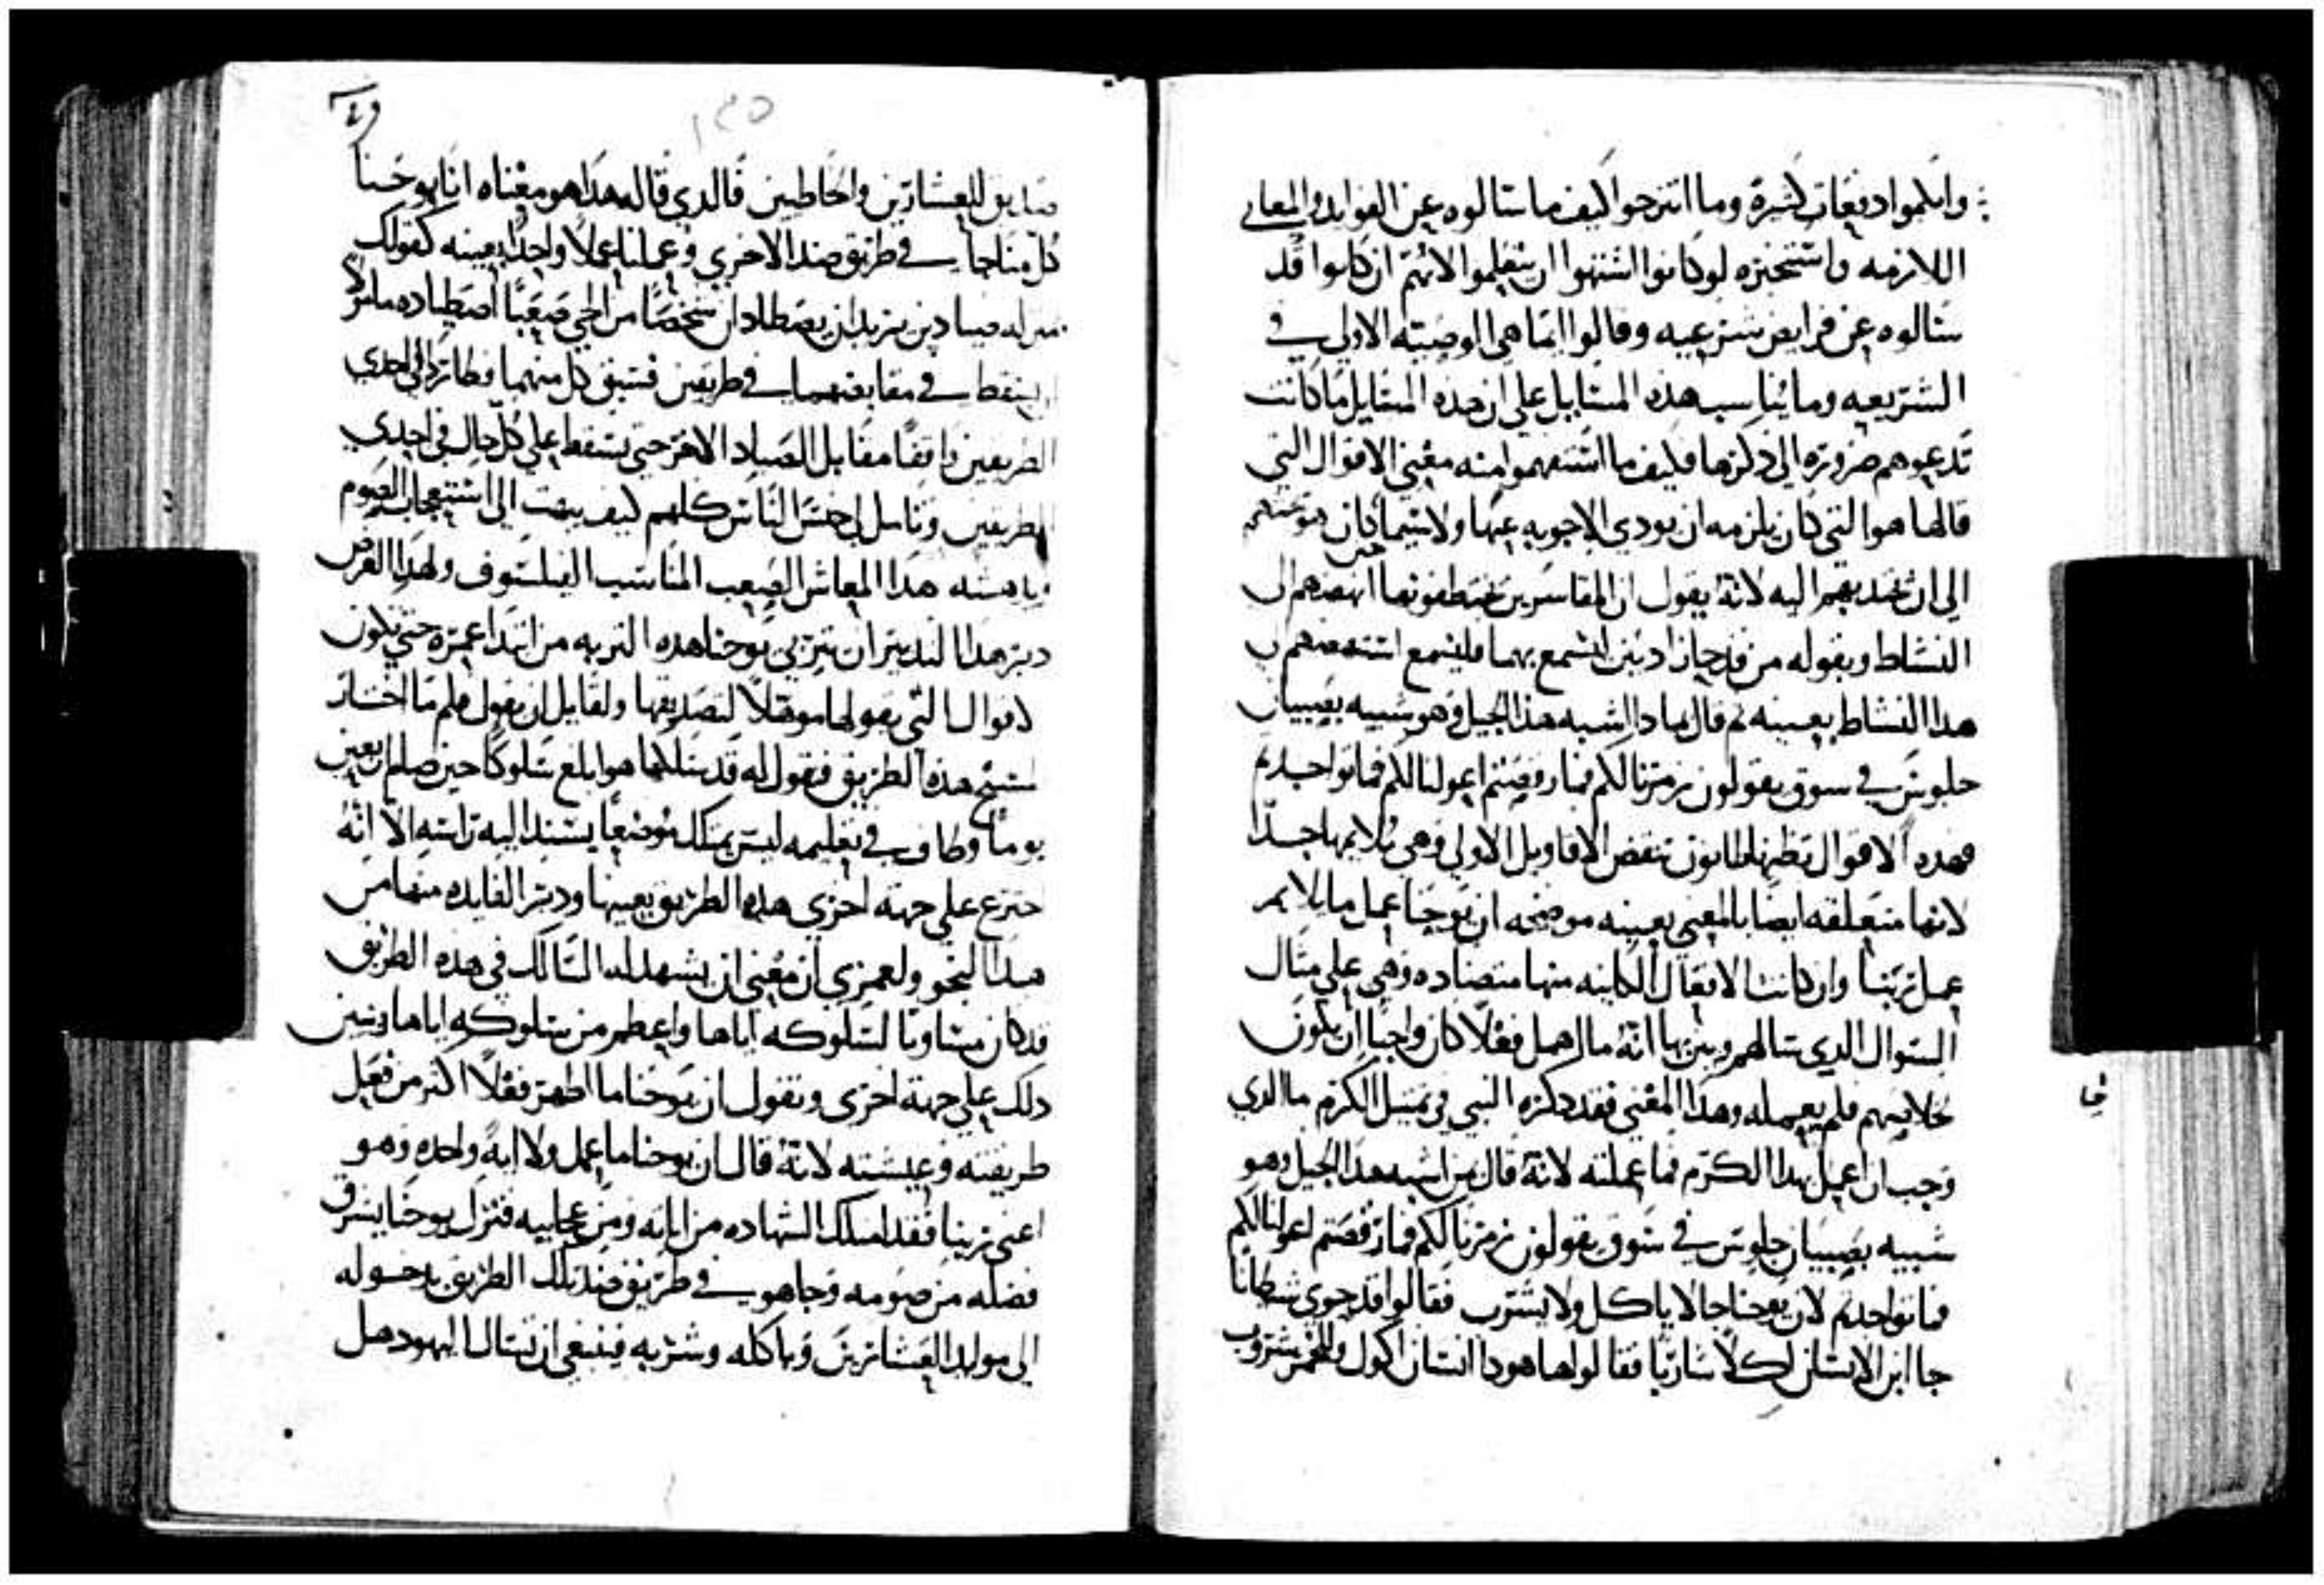 وابكموا دفعات كثيرة وما انزجروا كيف ما سالوه عن الفوايد والمعاني
اللازمه واستخبره لو كانوا اشتهوا ان يتعلموا لانهم ان كانوا قد
سالوه عن فرايض شرعيه وقالوا ايما هي الوصيه الاولي في
الشريعه وما يناسب هذه المسايل علي ان هذه المسايل ما كانت
تدعوهم ضروره الي ذكرها فكيف ما استفهموا منه معني الاقوال التي
قالها هو التي كان يلزمه ان يودي الاجوبه عنها ولاسيما حين كان هو
الي ان يجذبهم اليه لانه يقول ان المقاسرين يختطفونها انهضهم الي
النشاط وبقوله من قد حاز ادنين لتسمع بهما فليسمع استنهضهم الي
هدا النشاط بعينه ثم قال بمادا اشبه هذا الجيل وهو شبيه بصبيان
جلوس في سوق يقولون زمرنا لكم فما رقصتم اعولنا لكم فما نواحديم
فهده الاقوال تظن انها تنقض الاقاويل الاولي وهي تلايمها جدا
لانها متعلقه ايضا بالمعني بعينه موضحه ان يوحنا عمل ما يلايم
عمل ربنا وان كانت الافعال الكاينه منها متضاده وهي علي مثال
السوال الدي سالهم وبين بها انه ما اهمل فعلا كان واجبا ان يكون
لخلاصهم فلم يعمله وهدا المعني فقد دكره النبي في تمثيل الكرم ما الدي
وجب ان اعمل بهدا الكرم فما عملته لانه قال بمن اشبه هدا الجيل وهو
شبيه بصبيان جلوس في سوق يقولون زمرنا لكم فما رقصتم اعولنا لكم
فما نواحديم لان يوحنا جا لا ياكل ولا يشرب فقالوا قد حوي شيطانا
جا ابن الانسان اكلا شاربا فقالوا ها هودا انسان اكول وللخمر شروب
١٢٥
صديق للعشارين والخاطيين فالدي قاله هدا هو معناه انا ويوحنا
كل منا جا في طريق ضد الاخري وعملنا عملا واحدا بعينه كقولك
صيادين يريدان يصطادان شخصا من الحي صعبا اصطياده
يسقط في مقابضهما في طريقين فسبق كل منهما وطارد في احدي
الطريقين واقفا مقابل الصياد الاخر حتي يسقط علي كل حال في احدي
الطريقين وتامل لي جنس الناس كلهم كيف يبهت الي استعجاب الصوم
هدا المعاش الصعب المناسب الفيلسوف ولهدا الغرض
دبر هدا التدبير ان يتربي يوحنا هده التربيه من ابتدا عمره حتي تكون
الاقوال التي يقولها موهلا لتصديقها ولقايل ان يقول فلم ما اختار
يسوع هده الطريق فنقول له قد سلكها هو ابلغ سلوكا حين صام اربعين
يوما وطاف في تعليمه ليس يمتلك موضعا يسند اليه راسه الا انه
اخترع علي جهه اخري هده الطريق بعينها ودبر الفايده منها من
هدا النحو ولعمري ان معني ان يشهد له السالك في هده الطريق
قد كان مساويا لسلوكه اياها واعظم من سلوكه اياها ونبين
دلك علي جهه اخري ونقول ان يوحنا ما اظهر فعلا اكثر من فعل
طريقته وعيشته لانه قال ان يوحنا ما عمل ولا ايه واحده وهو
اعني ربنا فقد امتلك الشهاده من اياته ومن عجايبه فترك يوحنا يشرق
فضله من صومه وجا هو في طريق ضد تلك الطريق بدخوله
الي موايد العشارين وباكله وشربه فينبغي ان نسال اليهود هل